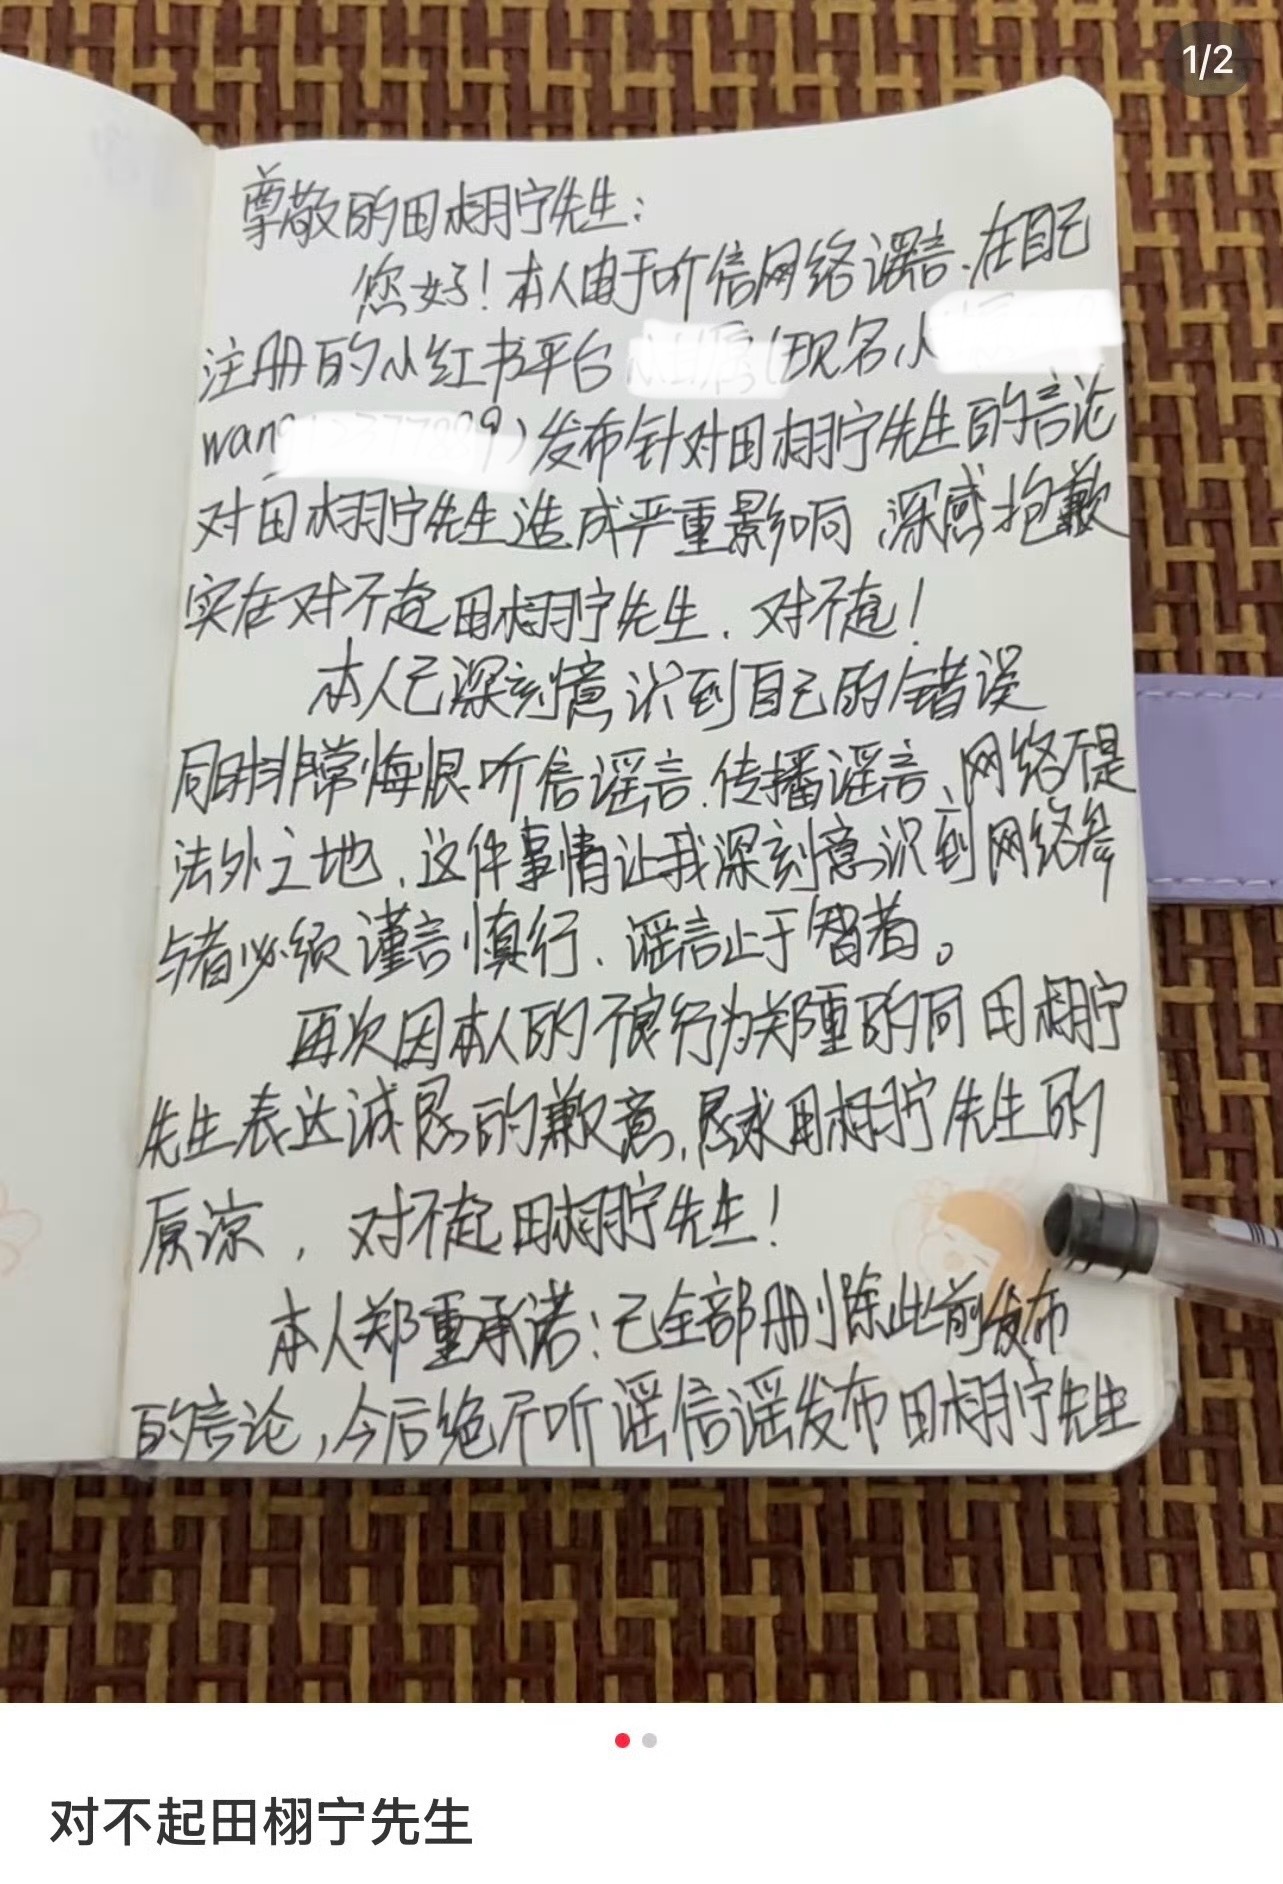 1/2
尊敬的田栩宁先生：
您好！本人由于听信网络谣言、在自己
注册的小红书平台（现名小
wang）发布针对田栩宁先生的言论
对田栩宁先生造成严重影响、深感抱歉
实在对不起田栩宁先生、对不起！
本人已深刻意识到自己的错误
同时非常悔恨听信谣言、传播谣言、网络不是
法外之地、这件事情让我深刻意识到网络参
与者必须谨言慎行、谣言止于智者。
再次因本人的不良行为郑重的向田栩宁
先生表达诚恳的歉意，恳求田栩宁先生的
原谅，对不起田栩宁先生！
本人郑重承诺：已全部删除此前发布
的言论，今后绝不听谣信谣发布田栩宁先生
对不起田栩宁先生